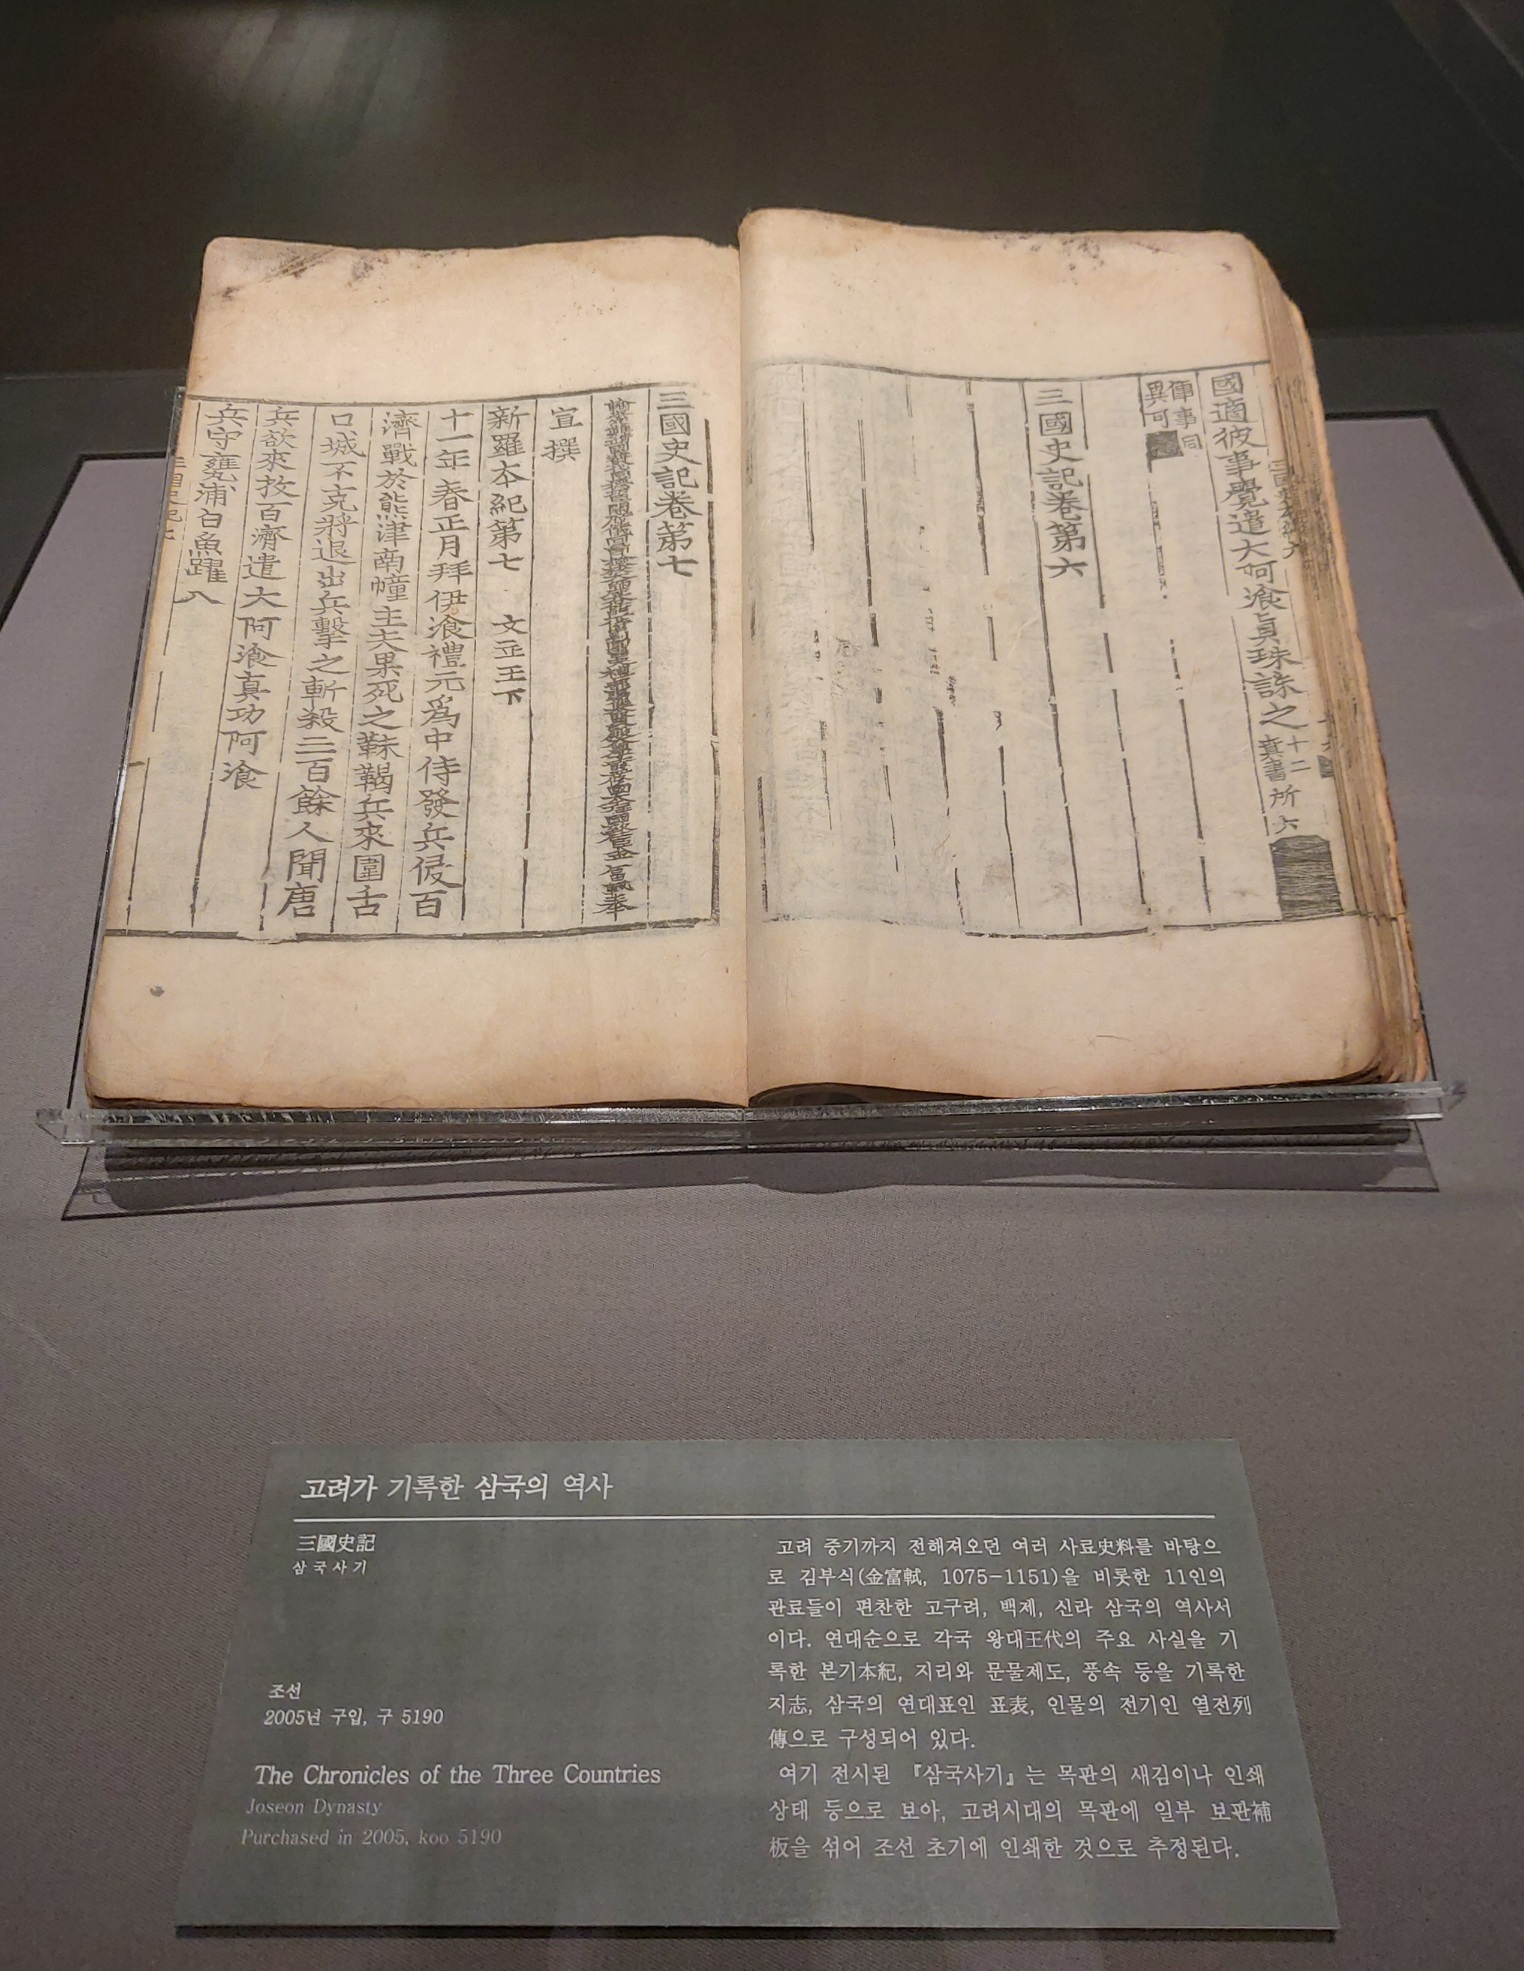 國適彼事覺遣大阿飡眞珠誅之
三國史記卷第六
三國史記卷第七
宣撰
新羅本紀第七 文正王下
十一年春正月拜伊飡禮元爲中侍發兵侵百
濟戰於熊津南幢主夫果死之靺鞨兵來圍舌
口城不克將退出兵擊之斬殺三百餘人聞唐
兵欲來救百濟遣大阿飡真功阿飡
兵守甕浦白魚躍入
고려가 기록한 삼국의 역사
三國史記
삼국사기
조선
2005년 구입, 구 5190
The Chronicles of the Three Countries
Joseon Dynasty
Purchased in 2005, koo 5190
고려 중기까지 전해져오던 여러 사료史料를 바탕으
로 김부식(金富軾, 1075-1151)을 비롯한 11인의
관료들이 편찬한 고구려, 백제, 신라 삼국의 역사서
이다. 연대순으로 각국 왕대王代의 주요 사실을 기
록한 본기本紀, 지리와 문물제도, 풍속 등을 기록한
지志, 삼국의 연대표인 표表, 인물의 전기인 열전列
傳으로 구성되어 있다.
여기 전시된 『삼국사기』는 목판의 새김이나 인쇄
상태 등으로 보아, 고려시대의 목판에 일부 보판補
板을 섞어 조선 초기에 인쇄한 것으로 추정된다.